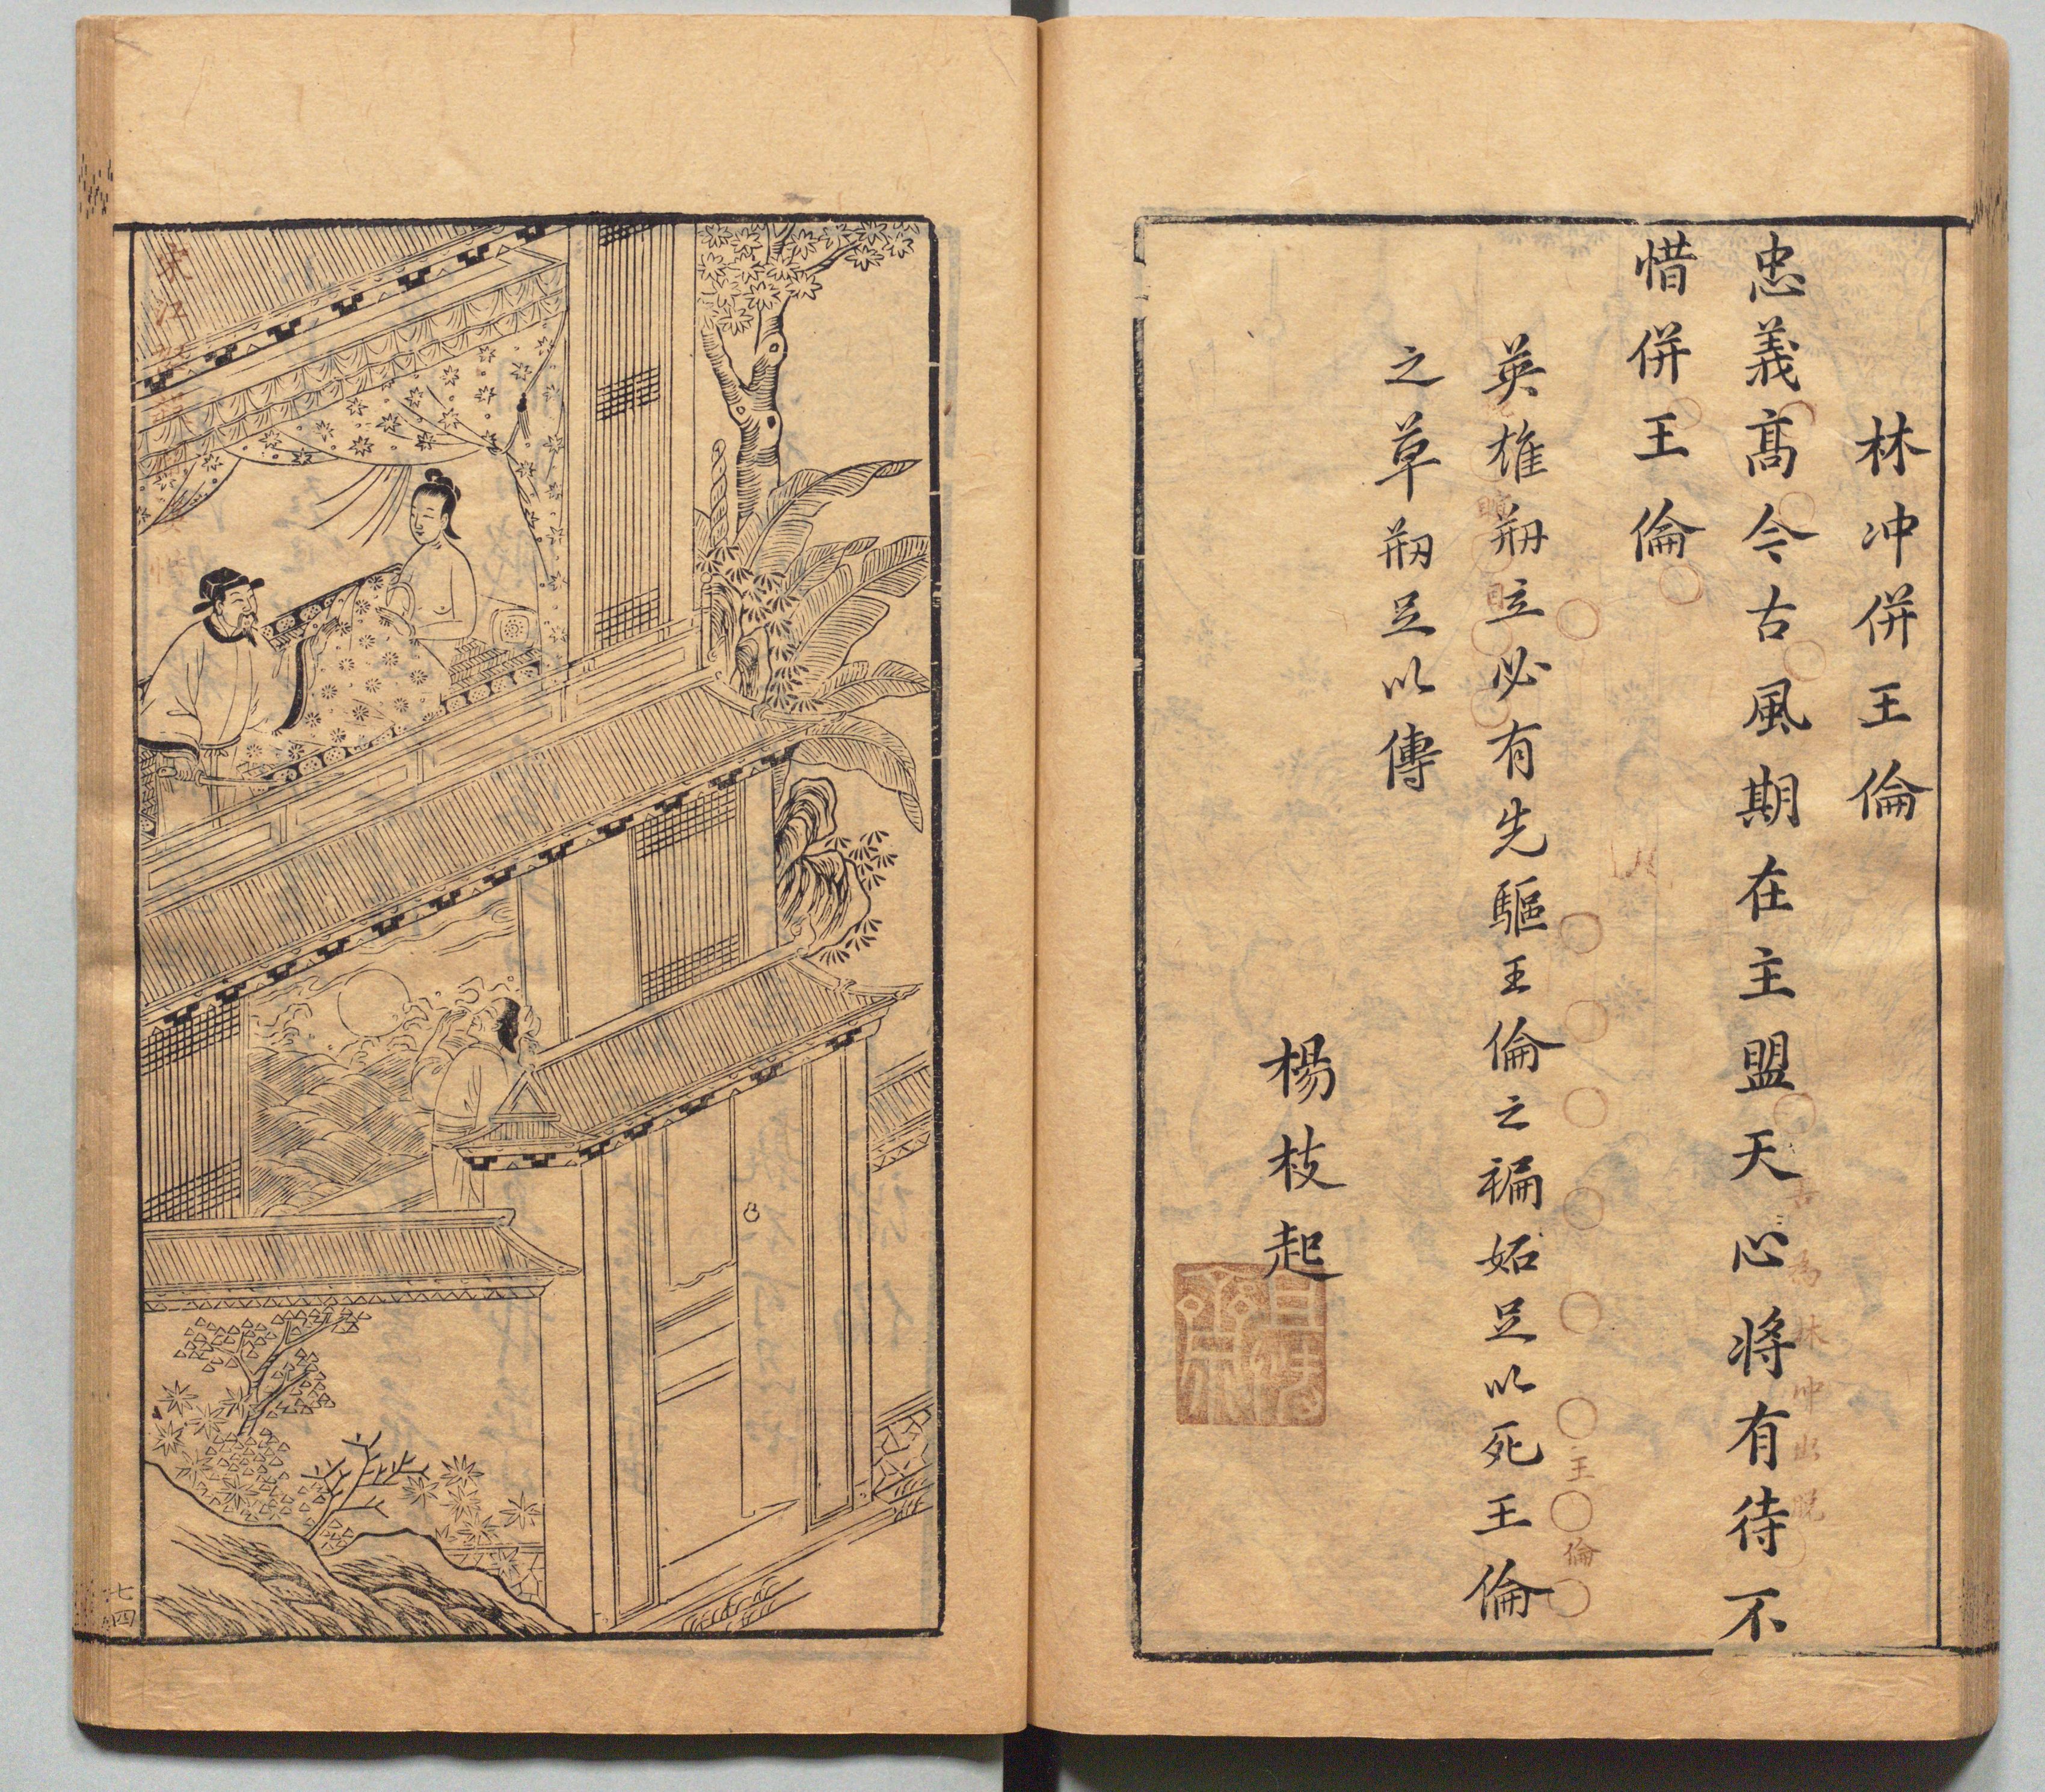 林冲併王倫
忠義髙今古風期在主盟天心將有待不
惜併王倫
英雄剏立必有先驅王倫之褊妬足以死王倫
之草剏足以傳
楊枝起
主
倫
為林冲出脱
七四